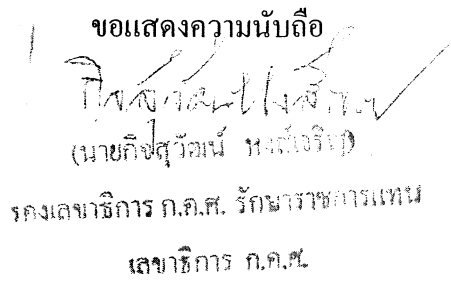 ขอแสดงความนับถือ
(นายกิจสุวัฒน์ หงส์เจริญ)
รองเลขาธิการ ก.ค.ศ. รักษาราชการแทน
เลขาธิการ ก.ค.ศ.